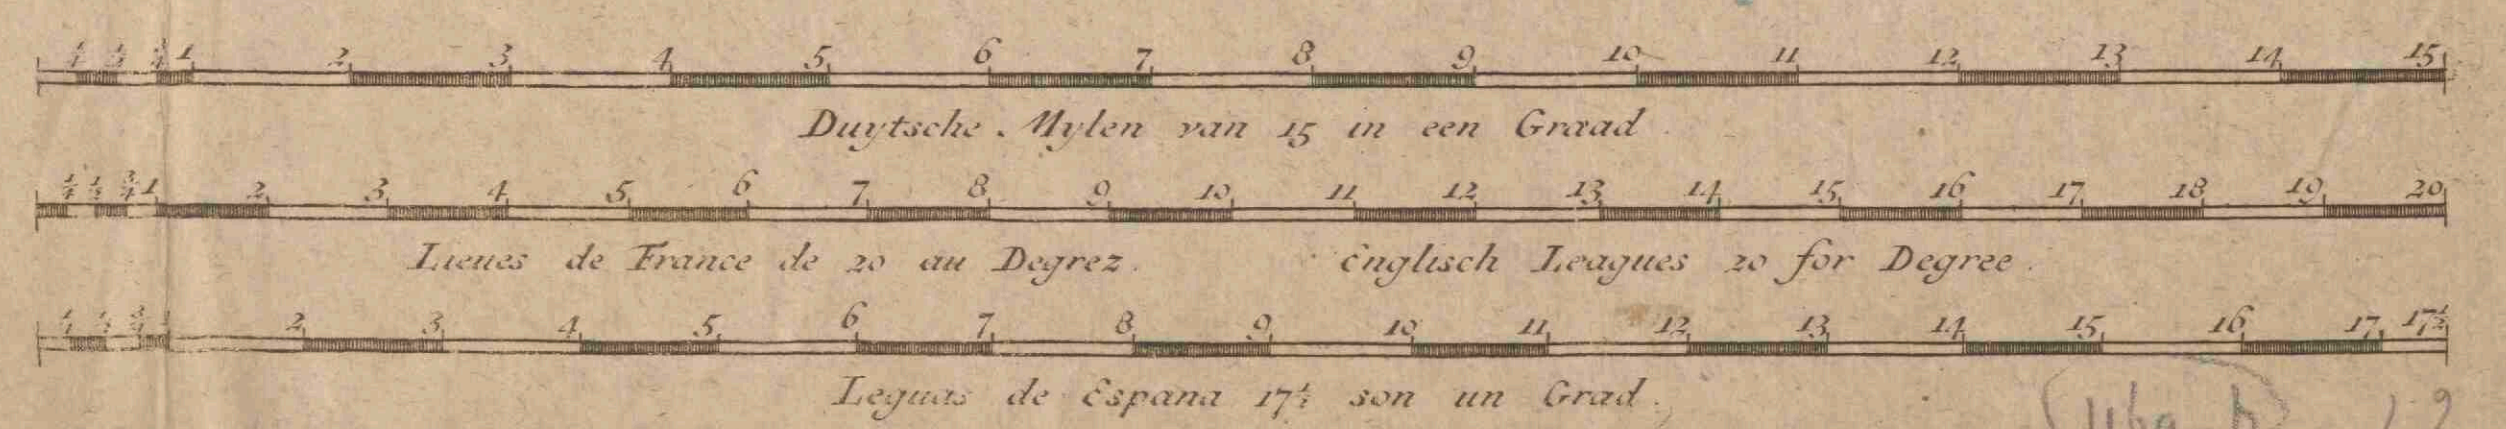 ¼ ½ ¾ 1 2 3 4 5 6 7 8 9 10 11 12 13 14 15
Duytsche Mylen van 15 in een Graad
¼ ½ ¾ 1 2 3 4 5 6 7 8 9 10 11 12 13 14 15 16 17 18 19 20
Lieues de France de 20 au Degrez. Englisch Leagues 20 for Degree.
¼ ½ ¾ 1 2 3 4 5 6 7 8 9 10 11 12 13 14 15 16 17 17½
Leguas de Espana 17½ son un Grad.